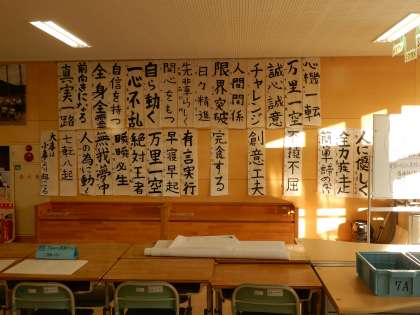 心機一転
万里一空
誠心誠意
チャレンジ
人間関係
限界突破
日々精進
先輩らしく
関心をもつ
自ら動く
一心不乱
自信を持つ
全身全霊
前向きになる
真実一路
人に優しく
全力疾走
不撓不屈
創意工夫
完食する
有言実行
早寝早起
万里一空
絶対王者
無我夢中
人の為に動く
七転八起
7A